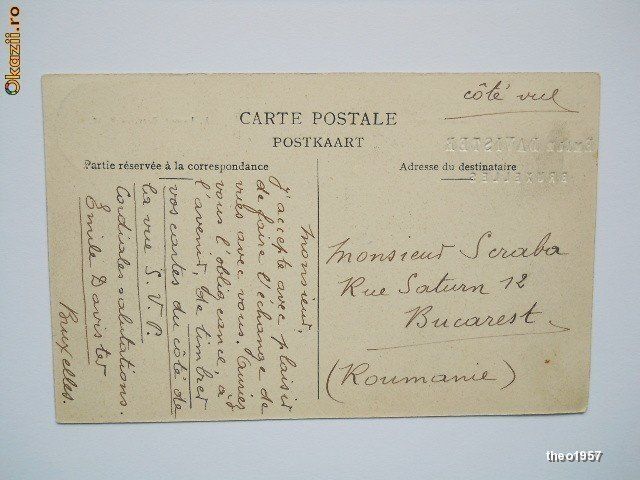 Okazii.ro
côté vue
CARTE POSTALE
POSTKAART
Partie réservée à la correspondance
Adresse du destinataire
DAVISTER
BRUXELLES
Monsieur,
J'accepte avec plaisir
de faire l'échange de
vues avec vous. Auriez
vous l'obligeance, à
l'avenir, de timbrer
vos cartes du côté de
la vue S.V.P.
Cordiales salutations.
Emile Davister
Bruxelles.
Monsieur Scraba
Rue Saturn 12
Bucarest.
(Roumanie)
theo1957